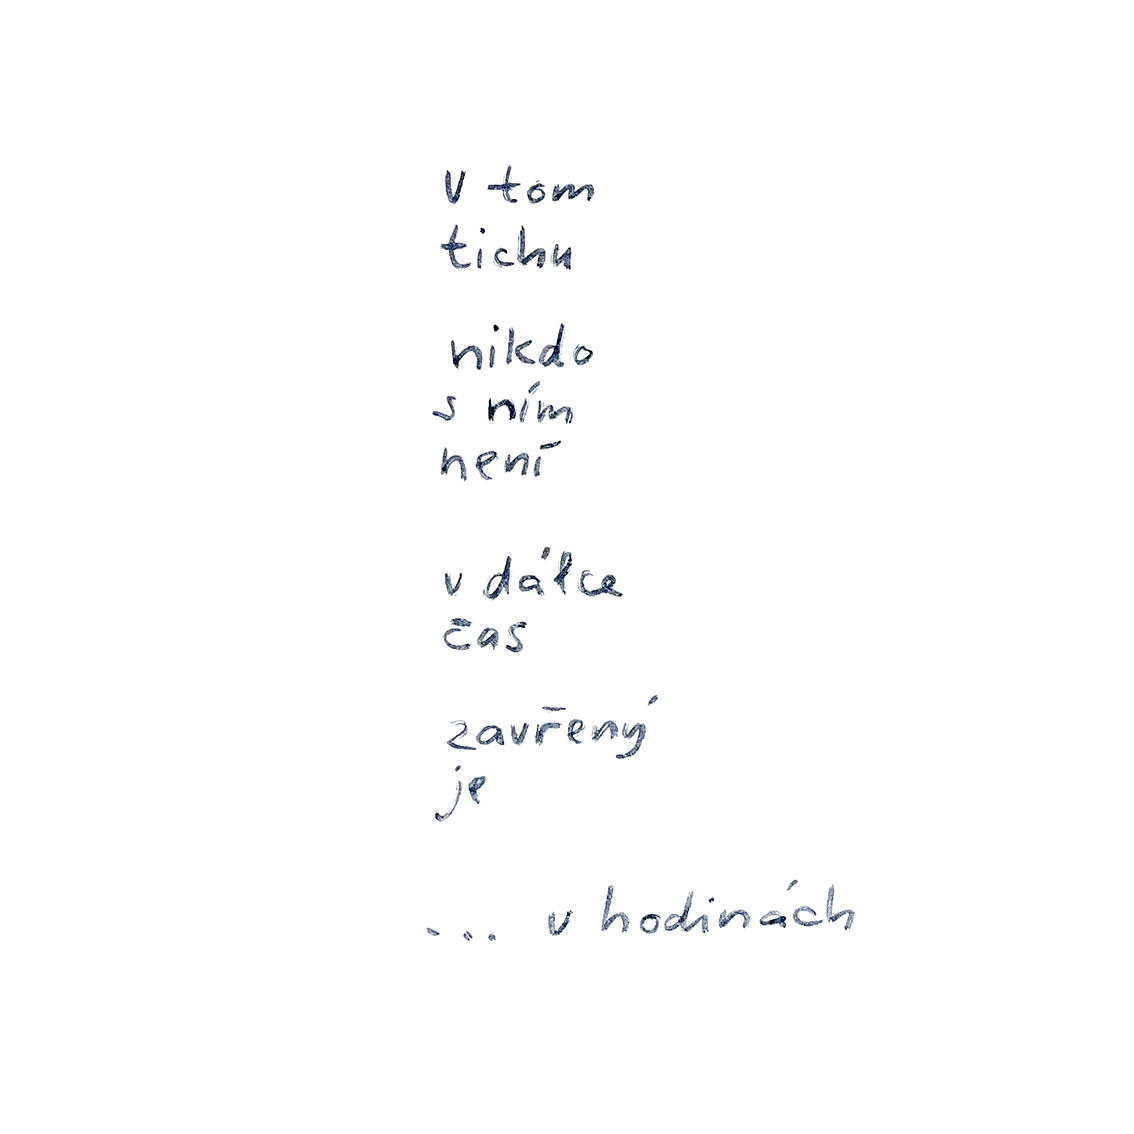 v tom
tichu
nikdo
s ním
není
v dálce
čas
zavřený
je
... v hodinách